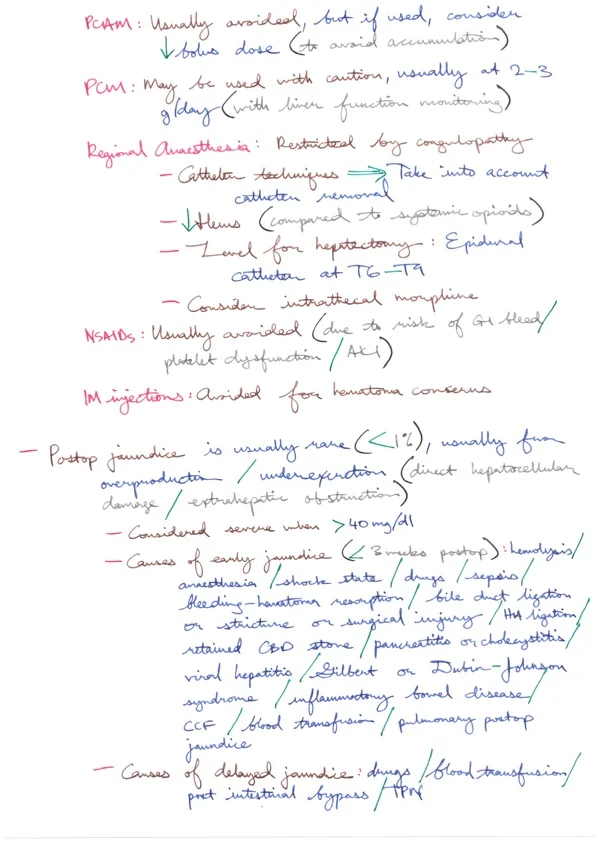 PCAM: Usually avoided, but if used, consider
↓ bolus dose (to avoid accumulation)
PCM: May be used with caution, usually at 2-3
g/day (with liver function monitoring)
Regional Anaesthesia: Restricted by coagulopathy
- Catheter techniques ⇒ Take into account
catheter removal
- ↓ Ileus (compared to systemic opioids)
- Level for hepatectomy: Epidural
catheter at T6-T9
- Consider intrathecal morphine
NSAIDs: Usually avoided (due to risk of GI bleed/
platelet dysfunction / AKI)
IM injections: Avoided for hematoma concerns
- Postop jaundice is usually rare (<1%), usually from
overproduction / underexcretion (direct hepatocellular
damage / extrahepatic obstruction)
- Considered severe when >40 mg/dl
- Causes of early jaundice (< 3 weeks postop): hemolysis/
anaesthesia / shock state / drugs / sepsis /
bleeding-hematoma resorption / bile duct ligation
or stricture or surgical injury / HA ligation/
retained CBD stone / pancreatitis or cholecystitis/
viral hepatitis / Gilbert or Dubin-Johnson
syndrome / inflammatory bowel disease/
CCF / blood transfusion / pulmonary postop
jaundice
- Causes of delayed jaundice: drugs / blood transfusion/
post intestinal bypass / TPN